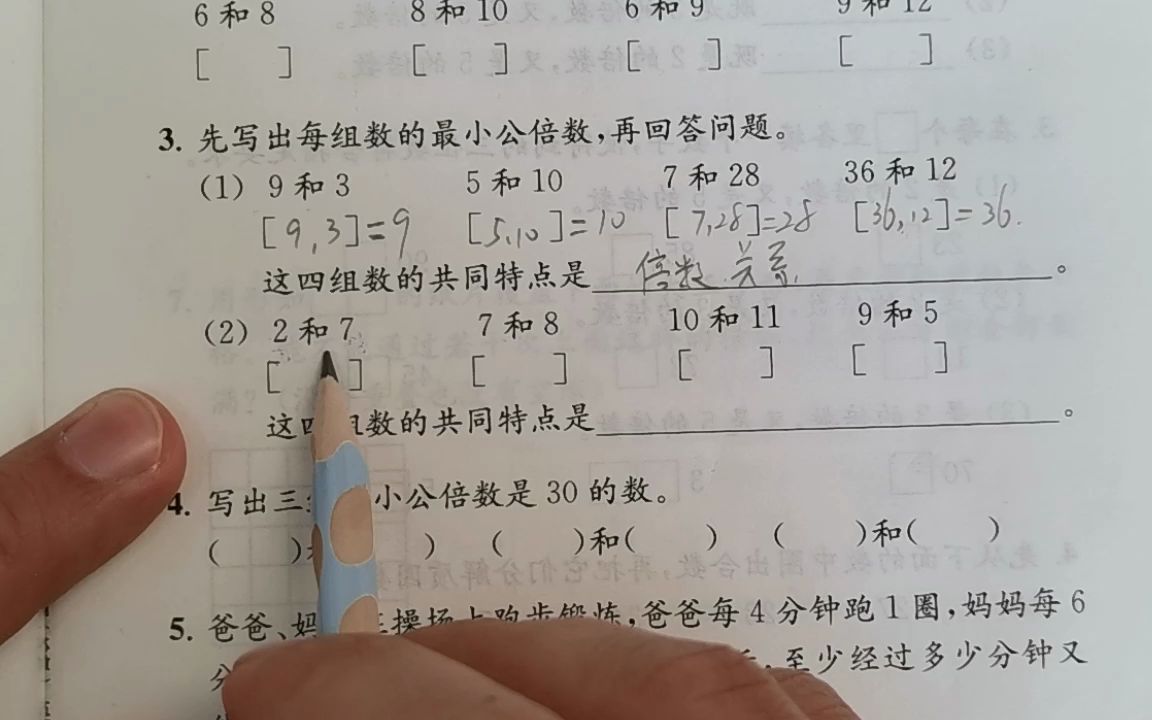 6 和 8 8 和 10 6 和 9 9 和 12
[ ] [ ] [ ] [ ]
3. 先写出每组数的最小公倍数,再回答问题。
(1) 9 和 3 5 和 10 7 和 28 36 和 12
[9,3]=9 [5,10]=10 [7,28]=28 [36,12]=36.
这四组数的共同特点是 倍数关系 。
(2) 2 和 7 7 和 8 10 和 11 9 和 5
[ ] [ ] [ ] [ ]
这四组数的共同特点是 。
4. 写出三 小公倍数是 30 的数。
( ) ) ( )和( ) ( )和( )
5. 爸爸、妈 操场上跑步锻炼,爸爸每 4 分钟跑 1 圈,妈妈每 6
分 至少经过多少分钟又